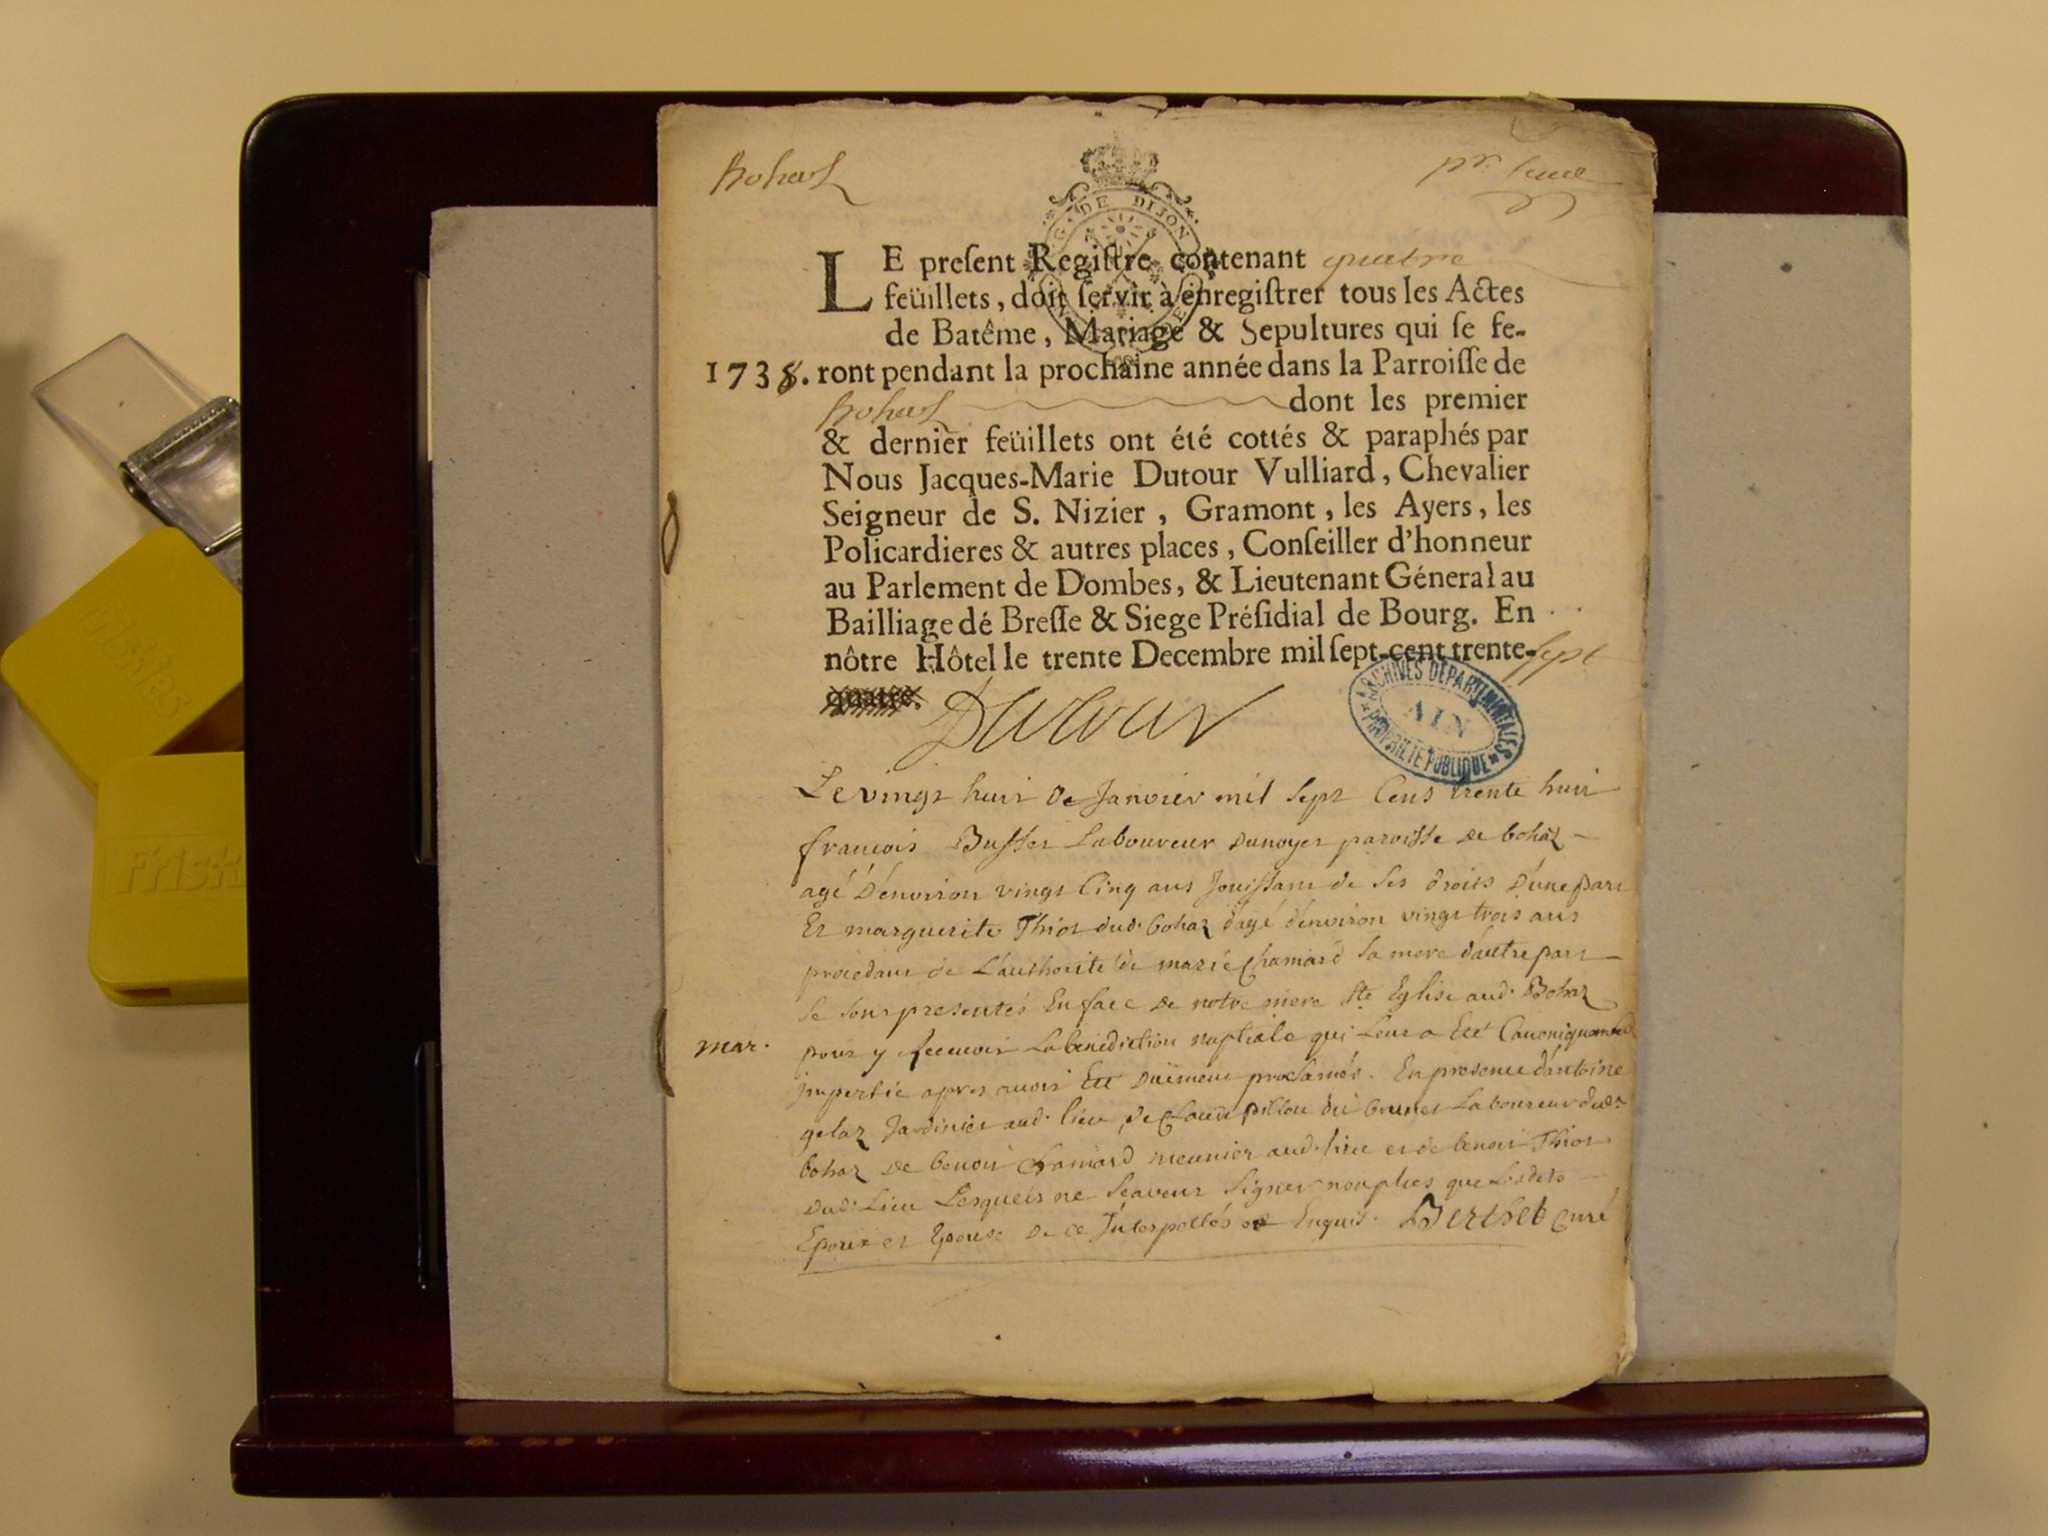 Bohas
G. DE DIJON
LE preſent Regiſtre contenant quatre
feüillets, doit ſervir à enregiſtrer tous les Actes
de Batême, Mariage & Sepultures qui ſe fe-
1738. ront pendant la prochaine année dans la Parroiſſe de
Bohas dont les premier
& dernier feüillets ont été cottés & paraphés par
Nous Jacques-Marie Dutour Vulliard, Chevalier
Seigneur de S. Nizier, Gramont, les Ayers, les
Policardieres & autres places, Conſeiller d'honneur
au Parlement de Dombes, & Lieutenant Géneral au
Bailliage dé Breſſe & Siege Préſidial de Bourg. En
nôtre Hôtel le trente Decembre mil ſept-cent trente-sept
quatre. Dutour
ARCHIVES DÉPARTEMENTALES
AIN
PROPRIÉTÉ PUBLIQUE
Le vingt huit de Janvier mil sept Cens trente huit
francois Buffet Laboureur dunoyer paroisse de bohaz
agé D'environ vingt Cinq ans Jouissant de ses droits D'une part
Et marguerite Thiot dud. bohaz d'agé d'environ vingt trois ans
procedant de L'authorité de marie Chamard sa mere d'autre part
se sont presentés En face de notre mere Ste Eglise aud. Bohaz
mar. pour y recevoir La benediction nuptiale qui Leur a Eté Canoniquement
impartie apres avoir Eté Duëment proclamés. En presence d'antoine
gelaz Jardinier aud. lieu, de Claude pillon du brunet Laboureur dud.
bohaz de benoit Chamard meunier aud. lieu et de benoit Thiot
dud. Lieu Lesquels ne scavent signer non plus que Lesdits
Epoux et Epouse de ce Interpellés et Enquis. Berthet Curé
Friskies
Frisk